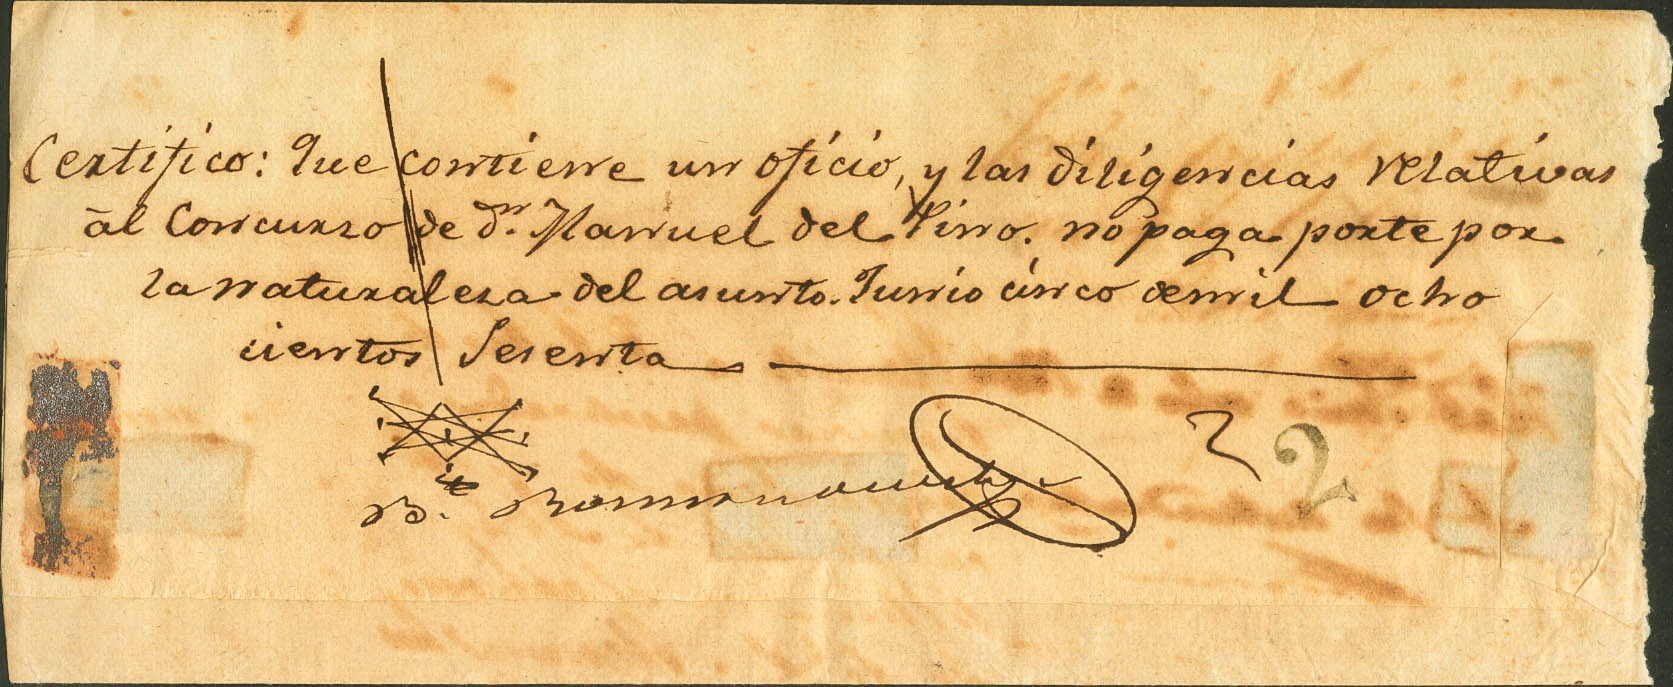 Certifico: Que contiene un oficio, y las diligencias relativas
al Concurso de Dn. Manuel del Pino. no paga porte por
la naturaleza del asunto. Junio cinco de mil ocho
cientos Sesenta
2